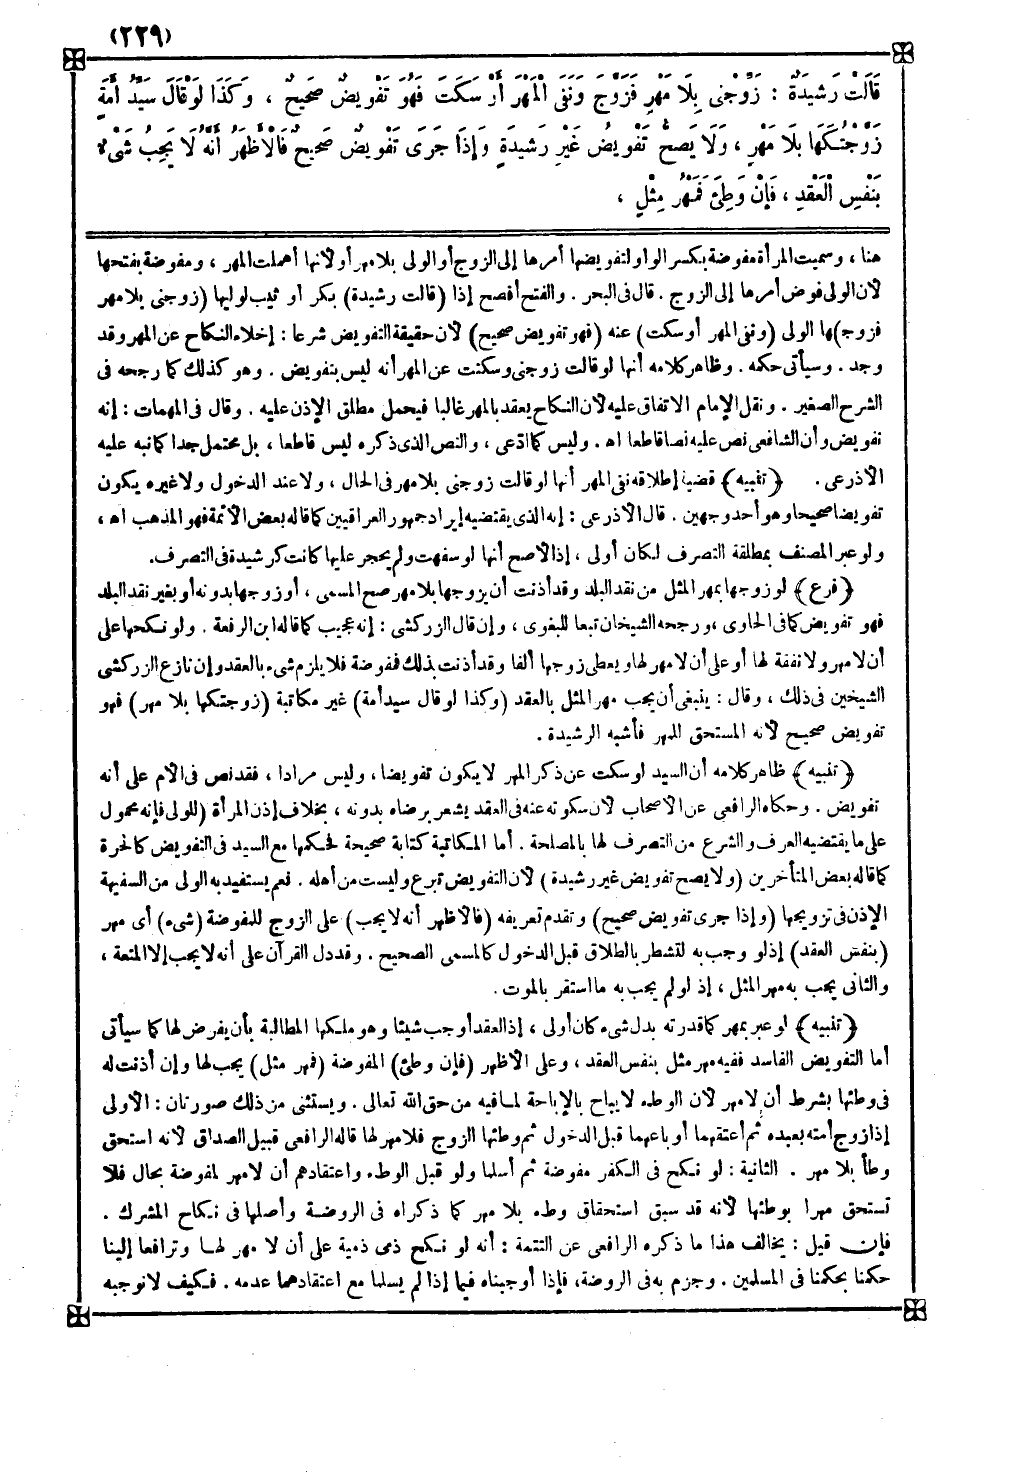 (٢٢٩)
قَالَتْ رَشِيدَةٌ : زَوِّجْنِى بِلَا مَهْرٍ فَزَوَّجَ وَنَفَى الْمَهْرَ أَوْ سَكَتَ فَهُوَ تَفْوِيضٌ صَحِيحٌ ، وَكَذَا لَوْ قَالَ سَيِّدُ أَمَةٍ
زَوَّجْتُكَهَا بِلَا مَهْرٍ ، وَلَا يَصِحُّ تَفْوِيضُ غَيْرِ رَشِيدَةٍ وَإِذَا جَرَى تَفْوِيضٌ صَحِيحٌ فَالْأَظْهَرُ أَنَّهُ لَا يَجِبُ شَىْءٌ
بِنَفْسِ الْعَقْدِ ، فَإِنْ وَطِئَ فَمَهْرُ مِثْلٍ ،
هنا ، وسميت المرأة مفوضة بكسر الواو لتفويضها أمرها إلى الزوج أو الولى بلا مهر أو لأنها أهملت المهر ، ومفوضة بفتحها
لأن الولى فوض أمرها إلى الزوج . قال فى البحر . والفتح أفصح إذا (قالت رشيدة) بكر أو ثيب لوليها (زوجنى بلا مهر
فزوج)ها الولى (ونفى المهر أو سكت) عنه (فهو تفويض صحيح) لأن حقيقة التفويض شرعا : إخلاء النكاح عن المهر وقد
وجد . وسيأتى حكمه . وظاهر كلامه أنها لو قالت زوجنى وسكتت عن المهر أنه ليس بتفويض . وهو كذلك كما رجحه فى
الشرح الصغير . ونقل الإمام الاتفاق عليه لأن النكاح يعقد بالمهر غالبا فيحمل مطلق الإذن عليه . وقال فى المهمات : إنه
تفويض وأن الشافعى نص عليه نصا قاطعا اهـ . وليس كما ادّعى ، والنص الذى ذكره ليس قاطعا ، بل محتمل جدا كما نبه عليه
الأذرعى . ﴿ تنبيه ﴾ قضية إطلاقه نفى المهر أنها لو قالت زوجنى بلا مهر فى الحال ، ولا عند الدخول ولا غيره يكون
تفويضا صحيحا وهو أحد وجهين . قال الأذرعى : إنه الذى يقتضيه إيراد جمهور العراقيين كما قاله بعض الأئمة فهو المذهب اهـ ،
ولو عبر المصنف بمطلقة التصرف لكان أولى ، إذ الأصح أنها لو سفهت ولم يحجر عليها كانت كرشيدة فى التصرف.
﴿ فرع ﴾ لو زوجها بمهر المثل من نقد البلد وقد أذنت أن يزوجها بلا مهر صح المسمى ، أو زوجها بدونه أو بغير نقد البلد
فهو تفويض كما فى الحاوى ، ورجحه الشيخان تبعا للبغوى ، وإن قال الزركشى : إنه عجيب كما قاله ابن الرفعة . ولو نكحها على
أن لا مهر ولا نفقة لها أو على أن لا مهر لها ويعطى زوجها ألفا وقد أذنت بذلك فمفوضة فلا يلزم شىء بالعقد وإن نازع الزركشى
الشيخين فى ذلك ، وقال : ينبغى أن يجب مهر المثل بالعقد (وكذا لو قال سيد أمة) غير مكاتبة (زوجتكها بلا مهر) فهو
تفويض صحيح لأنه المستحق للمهر فأشبه الرشيدة .
﴿ تنبيه ﴾ ظاهر كلامه أن السيد لو سكت عن ذكر المهر لا يكون تفويضا ، وليس مرادا ، فقد نص فى الأم على أنه
تفويض . وحكاه الرافعى عن الأصحاب لأن سكوته عنه فى العقد يشعر برضاه بدونه ، بخلاف إذن المرأة (للولى فإنه محمول
على ما يقتضيه العرف والشرع من التصرف لها بالمصلحة . أما المكاتبة كتابة صحيحة فحكمها مع السيد فى التفويض كالحرة
كما قاله بعض المتأخرين (ولا يصح تفويض غير رشيدة) لأن التفويض تبرع وليست من أهله . نعم يستفيد به الولى من السفيهة
الإذن فى تزويجها (وإذا جرى تفويض صحيح) وتقدم تعريفه (فالأظهر أنه لا يجب) على الزوج للمفوضة (شىء) أى مهر
(بنفس العقد) إذ لو وجب به لتشطر بالطلاق قبل الدخول كالمسمى الصحيح . وقد دل القرآن على أنه لا يجب إلا المتعة ،
والثانى يجب به مهر المثل ، إذ لو لم يجب به ما استقر بالموت .
﴿ تنبيه ﴾ لو عبر بمهر كما قدرته بدل شىء كان أولى ، إذ العقد أوجب شيئا وهو ملكها المطالبة بأن يفرض لها كما سيأتى
أما التفويض الفاسد ففيه مهر مثل بنفس العقد ، وعلى الأظهر (فإن وطئ) المفوضة (فمهر مثل) يجب لها وإن أذنت له
فى وطئها بشرط أن لا مهر لأن الوطء لا يباح بالإباحة لما فيه من حق الله تعالى . ويستثنى من ذلك صورتان : الأولى
إذا زوج أمته بعبده ثم أعتقهما أو باعهما قبل الدخول ثم وطئها الزوج فلا مهر لها قاله الرافعى قبيل الصداق لأنه استحق
وطأ بلا مهر . الثانية : لو نكح فى الكفر مفوضة ثم أسلما ولو قبل الوطء واعتقادهم أن لا مهر لمفوضة بحال فلا
تستحق مهرا بوطئها لأنه قد سبق استحقاق وطء بلا مهر كما ذكراه فى الروضة وأصلها فى نكاح المشرك .
فإن قيل : يخالف هذا ما ذكره الرافعى عن التتمة : أنه لو نكح ذمى ذمية على أن لا مهر لها وترافعا إلينا
حكمنا بحكمنا فى المسلمين . وجزم به فى الروضة، فإذا أوجبناه فيما إذا لم يسلما مع اعتقادهما عدمه . فكيف لا نوجبه